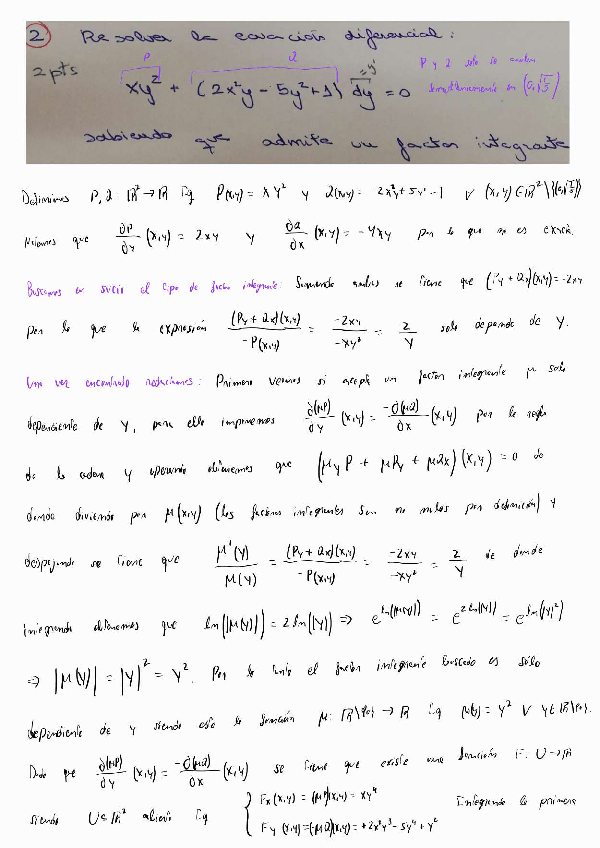 2 Resolver la ecuación diferencial:
2 pts
P
Q
xy² + (2x²y - 5y² + 1) dy = 0
= y'
P y Q solo se anulan
simultáneamente en (0, √1/5)
sabiendo que admite un factor integrante
Definimos P, Q: ℝ² → ℝ tq P(x,y) = xy² y Q(x,y) = -2x²y + 5y² - 1 ∀ (x,y) ∈ ℝ² \ {(0, √1/5)}
que ∂P/∂y (x,y) = 2xy y ∂Q/∂x (x,y) = -4xy por lo que no es exacta.
Buscamos en sucio el tipo de factor integrante: Sumando ambas se tiene que (Py + Qx)(x,y) = -2xy
por lo que la expresión (Py + Qx)(x,y) / -P(x,y) = -2xy / -xy² = 2/y solo depende de y.
Una vez encontrado redactamos: Primero vemos si acepta un factor integrante μ solo
dependiente de y, para ello imponemos ∂(μP)/∂y (x,y) = -∂(μQ)/∂x (x,y) por la regla
de la cadena y operando obtenemos que (μy P + μPy + μQx)(x,y) = 0 de
donde dividiendo por μ(x,y) (los factores integrantes son no nulos por definición) y
despejando se tiene que μ'(y)/μ(y) = (Py + Qx)(x,y) / -P(x,y) = -2xy / -xy² = 2/y de donde
integrando obtenemos que ln(|μ(y)|) = 2 ln(|y|) ⇒ e^ln(|μ(y)|) = e^2 ln(|y|) = e^ln(|y|²)
⇒ |μ(y)| = |y|² = y². Por lo tanto el factor integrante buscado es sólo
dependiente de y siendo este la función μ: ℝ\{0} → ℝ tq μ(y) = y² ∀ y ∈ ℝ\{0}.
Dado que ∂(μP)/∂y (x,y) = -∂(μQ)/∂x (x,y) se tiene que existe una función F: U → ℝ
siendo U ⊆ ℝ² abierto tq { Fx(x,y) = (μP)(x,y) = xy⁴ Integrando la primera
Fy(x,y) = (-μQ)(x,y) = +2x²y³ - 5y⁴ + y²